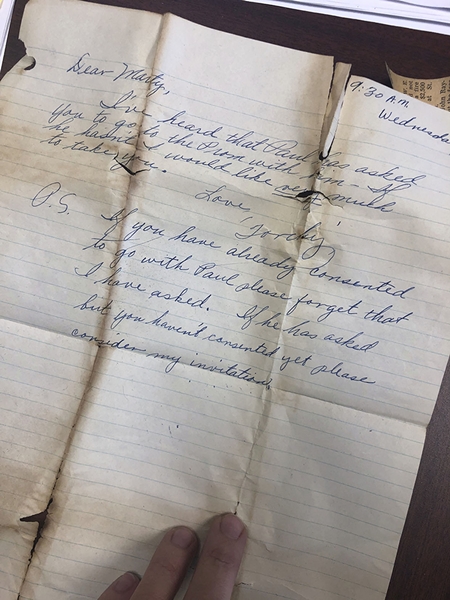 9:30 A.M.
Wednesda
Dear Marty,
I've heard that Paul has asked
you to go to the Prom with him - If
he hasn't I would like very much
to take you.
Love,
"Torchy"
P.S. If you have already consented
to go with Paul please forget that
I have asked. If he has asked
but you haven't consented yet please
consider my invitation.
$2,500